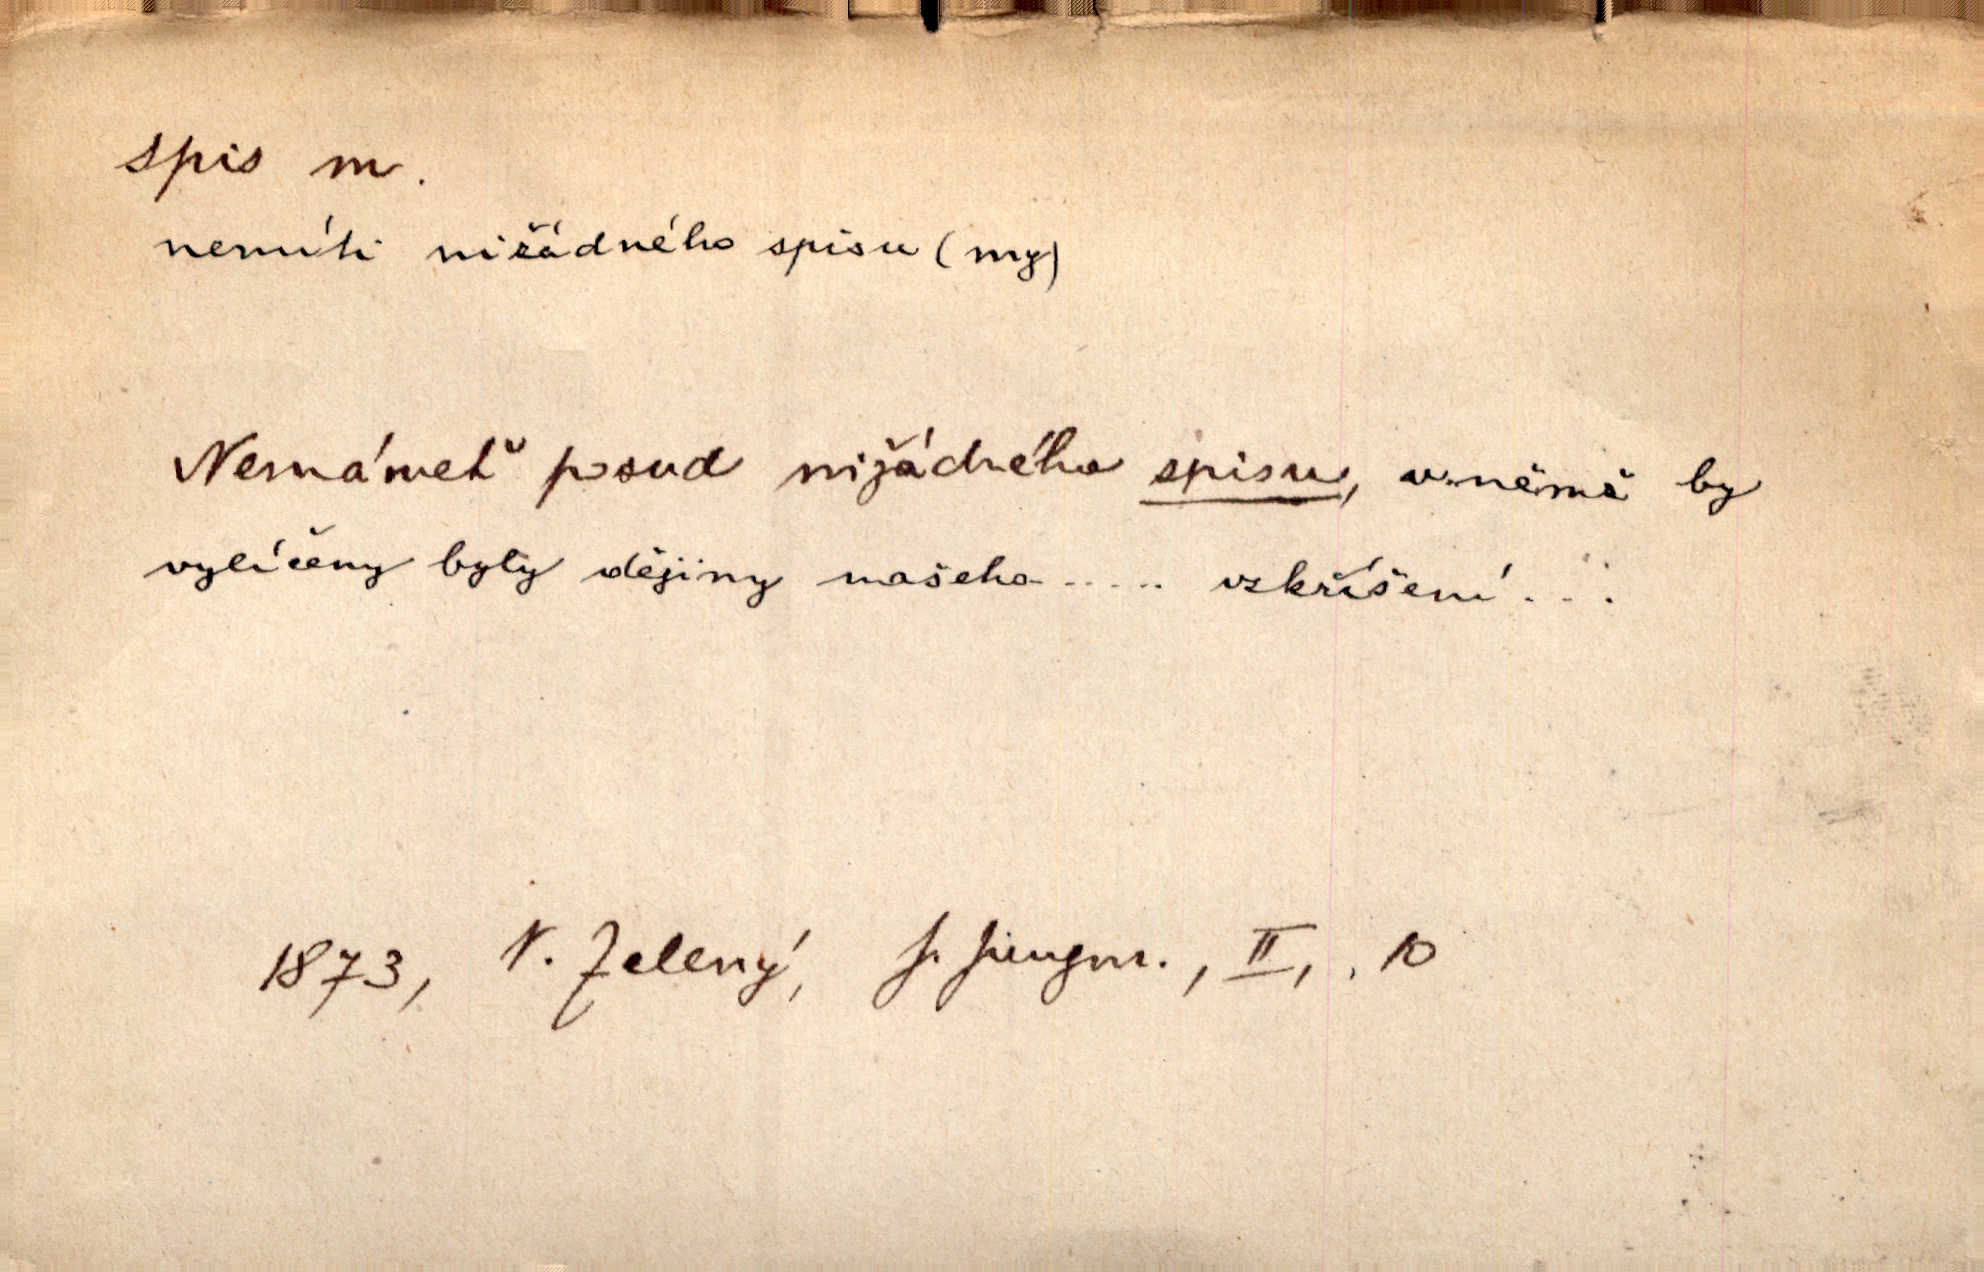 spis m.
nemíti nižádného spisu (my)
Nemámeť posud nižádného spisu, v němž by
vylíčeny byly dějiny našeho ..... vzkříšení ...
1873, V. Zelený, J. Jungm., II, . 10